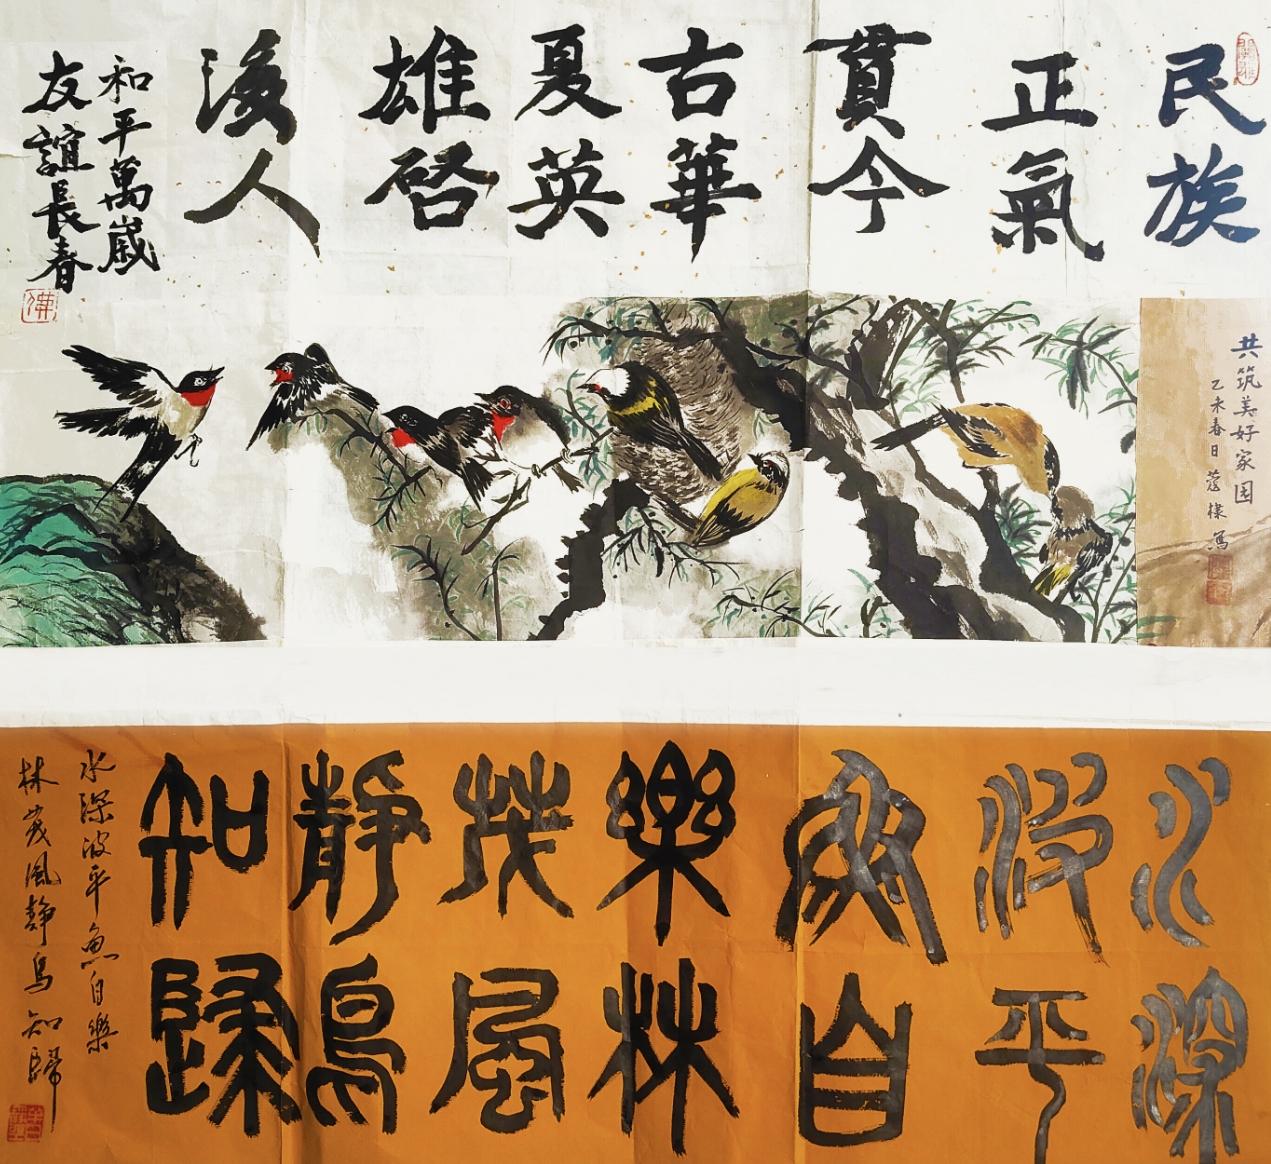 民族
正氣
貫今
古華
夏英
雄啓
後人
和平萬歲
友誼長春
佛
共筑美好家园
乙未春日
水深
波平
魚自
樂林
茂風
靜鳥
知歸
水深波平魚自樂
林茂風静鳥知歸